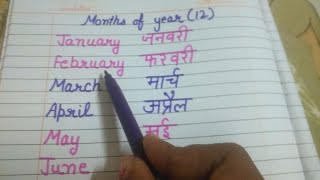 Months of year (12)
January जनवरी
February फरवरी
March मार्च
April अप्रैल
May मई
June